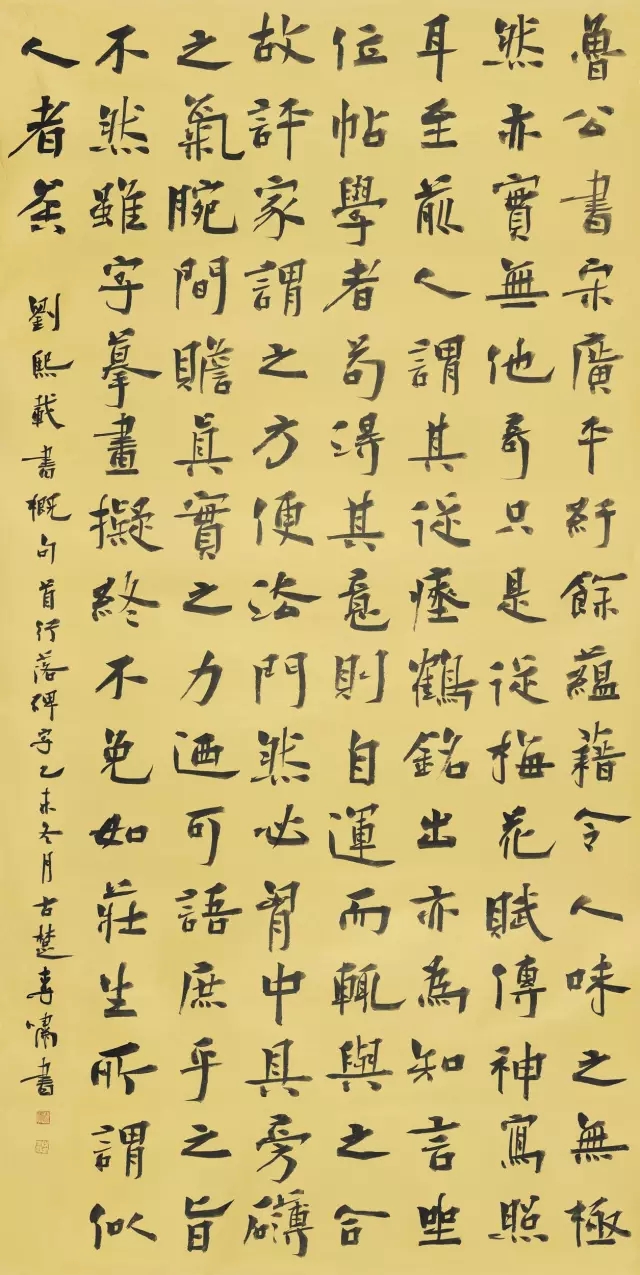 魯公書宋廣平紆餘蘊藉令人味之無極
然亦實無他奇只是從梅花賦傳神寫照
耳至前人謂其從瘞鶴銘出亦為知言坐
位帖學者苟得其意則自運而輒與之合
故評家謂之方便法門然必胷中具旁礴
之氣腕間贍真實之力迺可語庶乎之旨
不然雖字摹畫擬終不免如莊生所謂似
人者矣
劉熙載書概句首行落碑字乙未冬月古楚嘯書